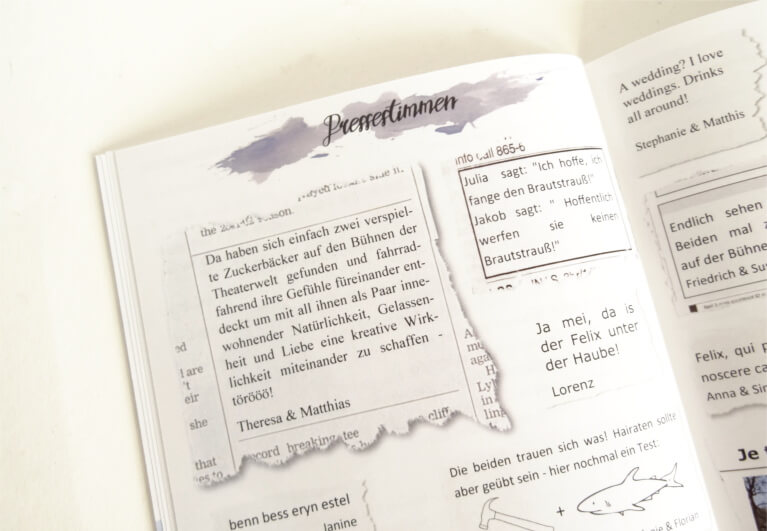 Pressestimmen
the season.
Da haben sich einfach zwei verspiel-
te Zuckerbäcker auf den Bühnen der
Theaterwelt gefunden und fahrrad-
fahrend ihre Gefühle füreinander ent-
deckt um mit all ihnen als Paar inne-
wohnender Natürlichkeit, Gelassen-
heit und Liebe eine kreative Wirk-
lichkeit miteinander zu schaffen -
törööö!
Theresa & Matthias
ed
are
't
eir
she
that
breaking tee
cliff
info call 865-6
Julia sagt: "Ich hoffe, ich
fange den Brautstrauß!"
Jakob sagt: " Hoffentlich
werfen sie keinen
Brautstrauß!"
Ja mei, da is
der Felix unter
der Haube!
Lorenz
benn bess eryn estel
Janine
Die beiden trauen sich was! Hairaten sollte
aber geübt sein - hier nochmal ein Test:
+
& Florian
A wedding? I love
weddings. Drinks
all around!
Stephanie & Matthis
Endlich sehen
Beiden mal
auf der Bühne
Friedrich & Su
Felix, qui
noscere ca
Anna & Sir
Je